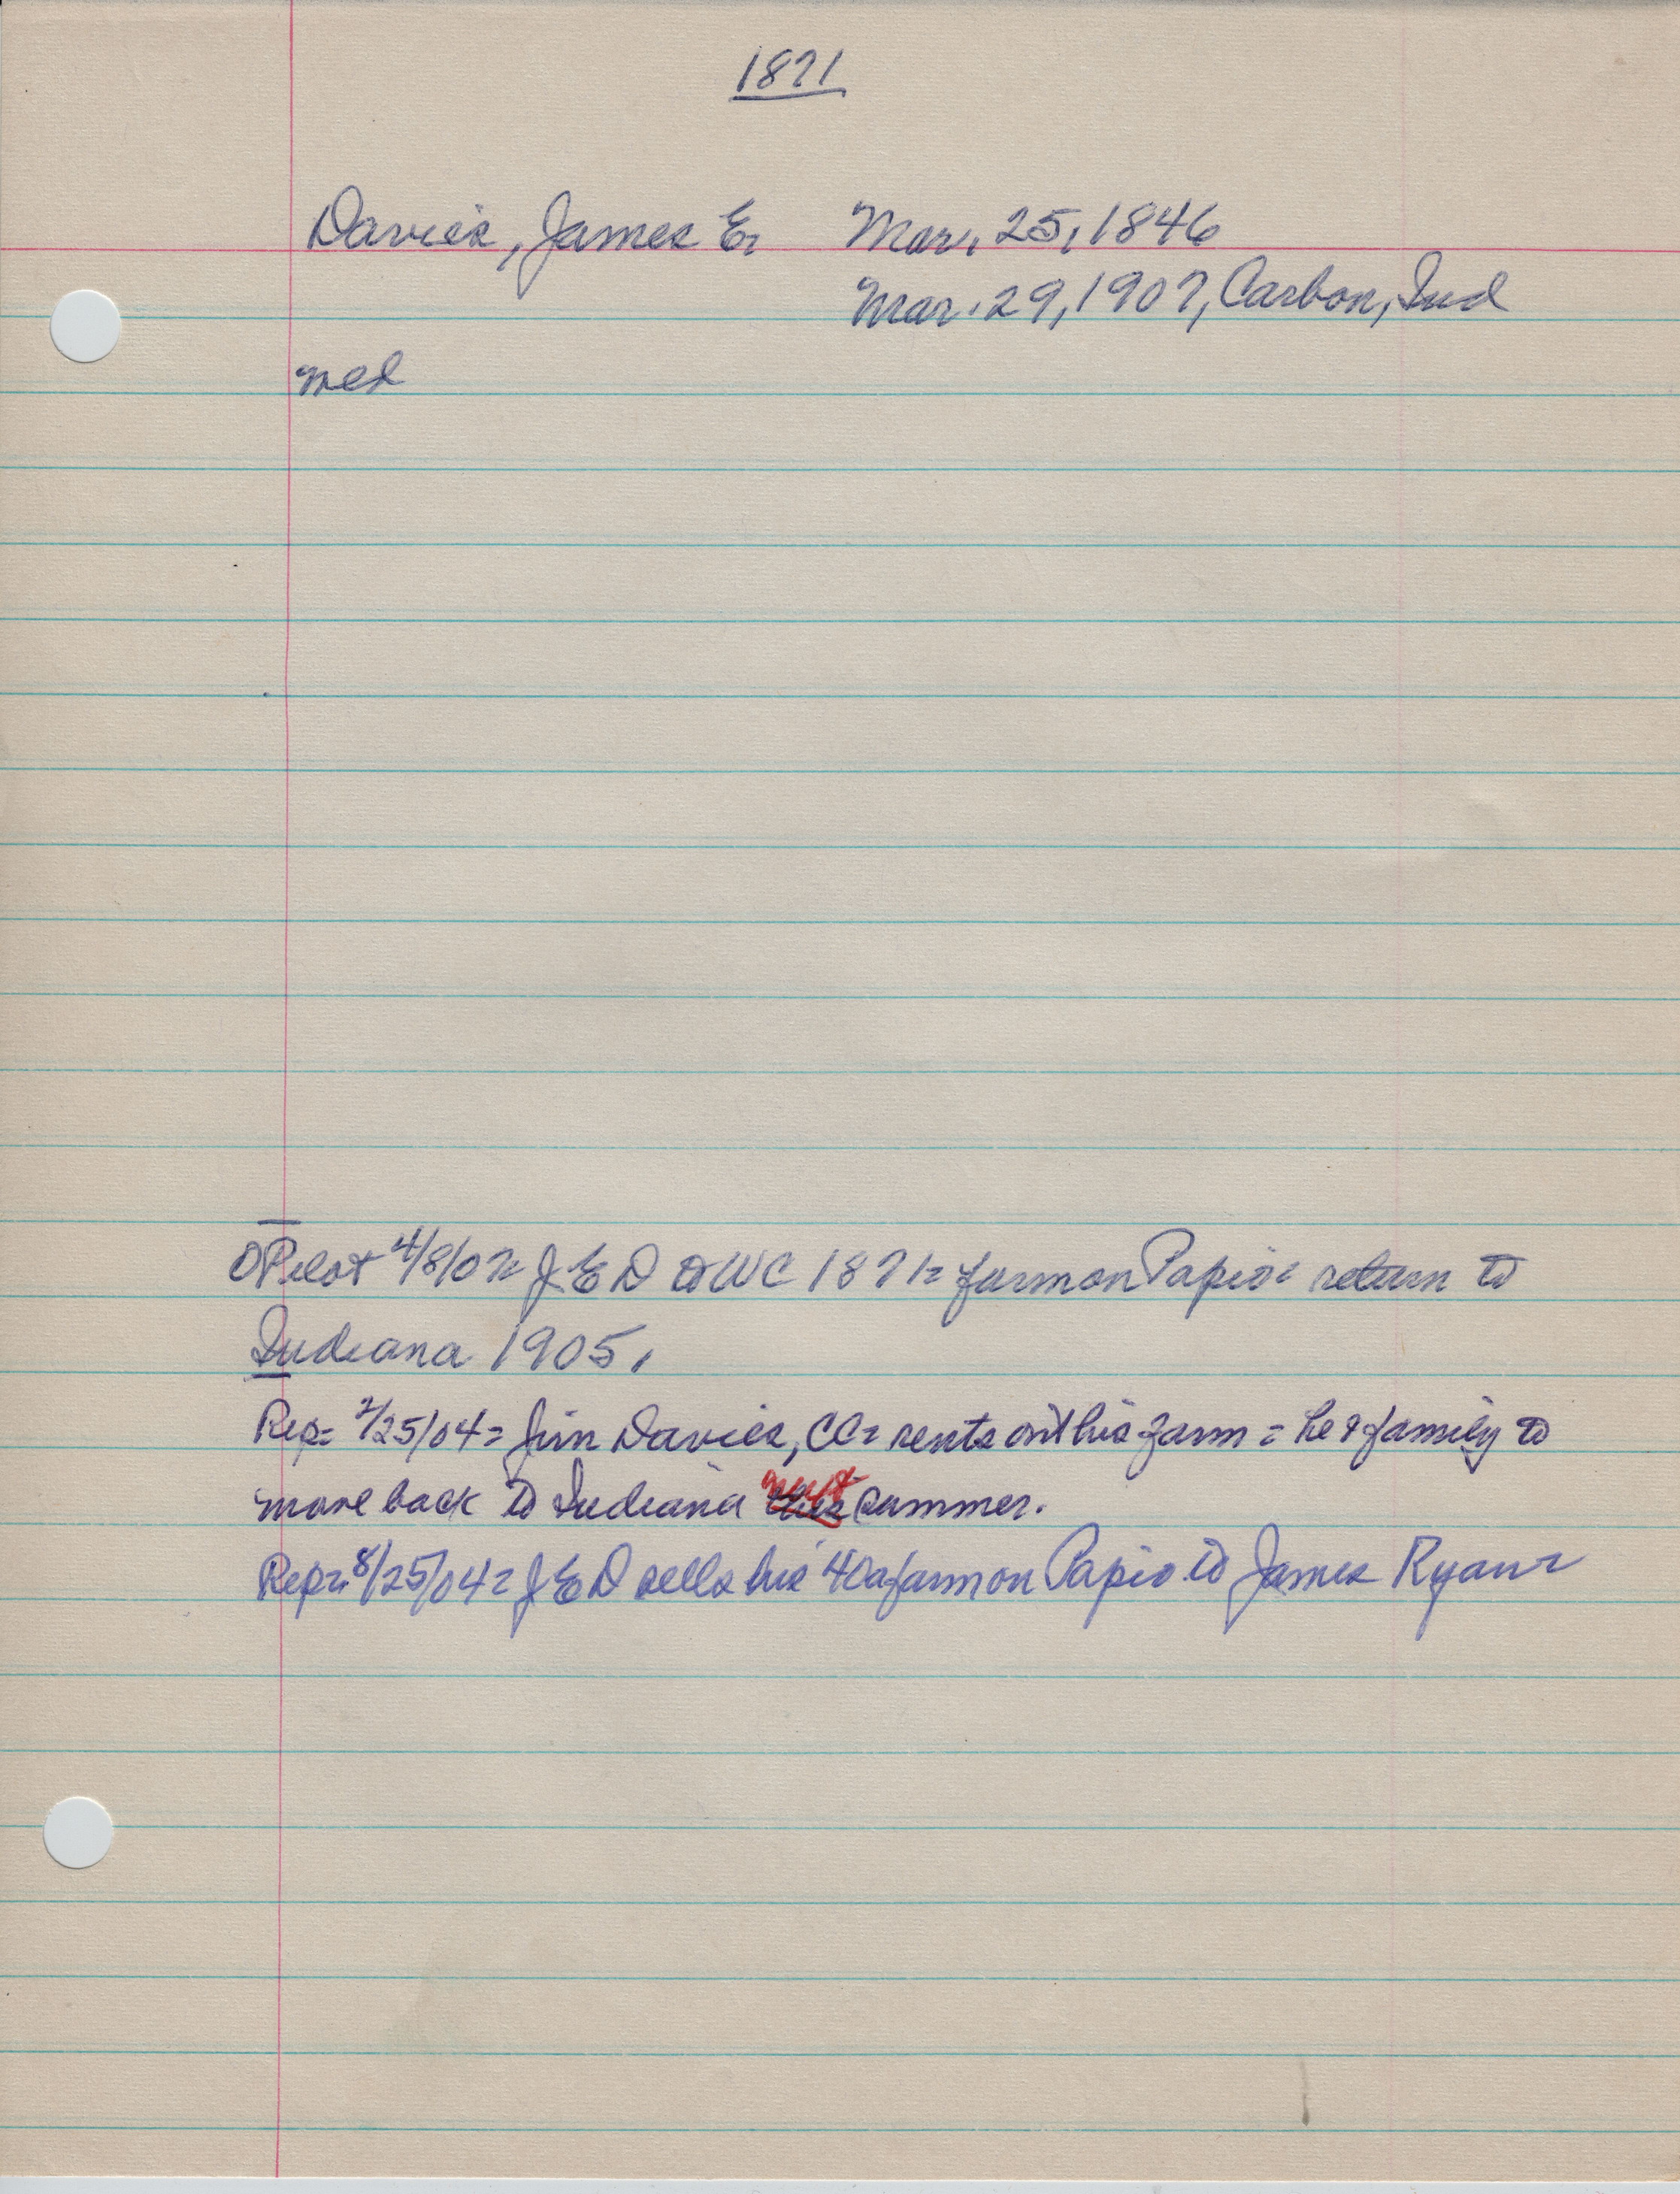 1871
Davies, James E. Mar. 25, 1846
Mar. 29, 1907, Carbon, Ind
med
Pilot 4/8/07= J E D to WC 1871= farm on Papio= return to
Indiana 1905.
Rep= 2/25/04= Jim Davies, CC= rents out his farm = he & family to
move back to Indiana next summer.
Rep= 8/25/04= J E D sells his 40a farm on Papio to James Ryan=